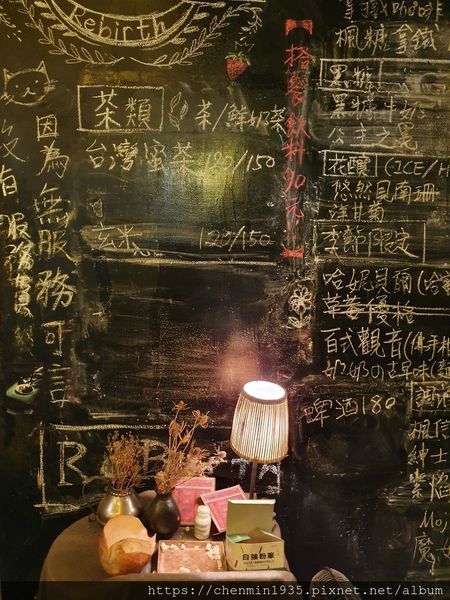 Rebirth
茶類
茶/鮮奶茶
台灣蜜茶 120/150
玄米 120/150
因為無服務可言
沒有
服務
搭餐飲料90元
楓糖拿鐵
黑糖
黑糖牛奶
公主之晃
花釀 (ICE/H
悠然貝南珊
洋甘菊
季節限定
哈妮貝爾
百式觀音
奶奶の古早味
啤酒180
調酒
楓信
紳士
紫焰
Moj
魔
自強粉筆
https://chenmin1935.pixnet.net/album